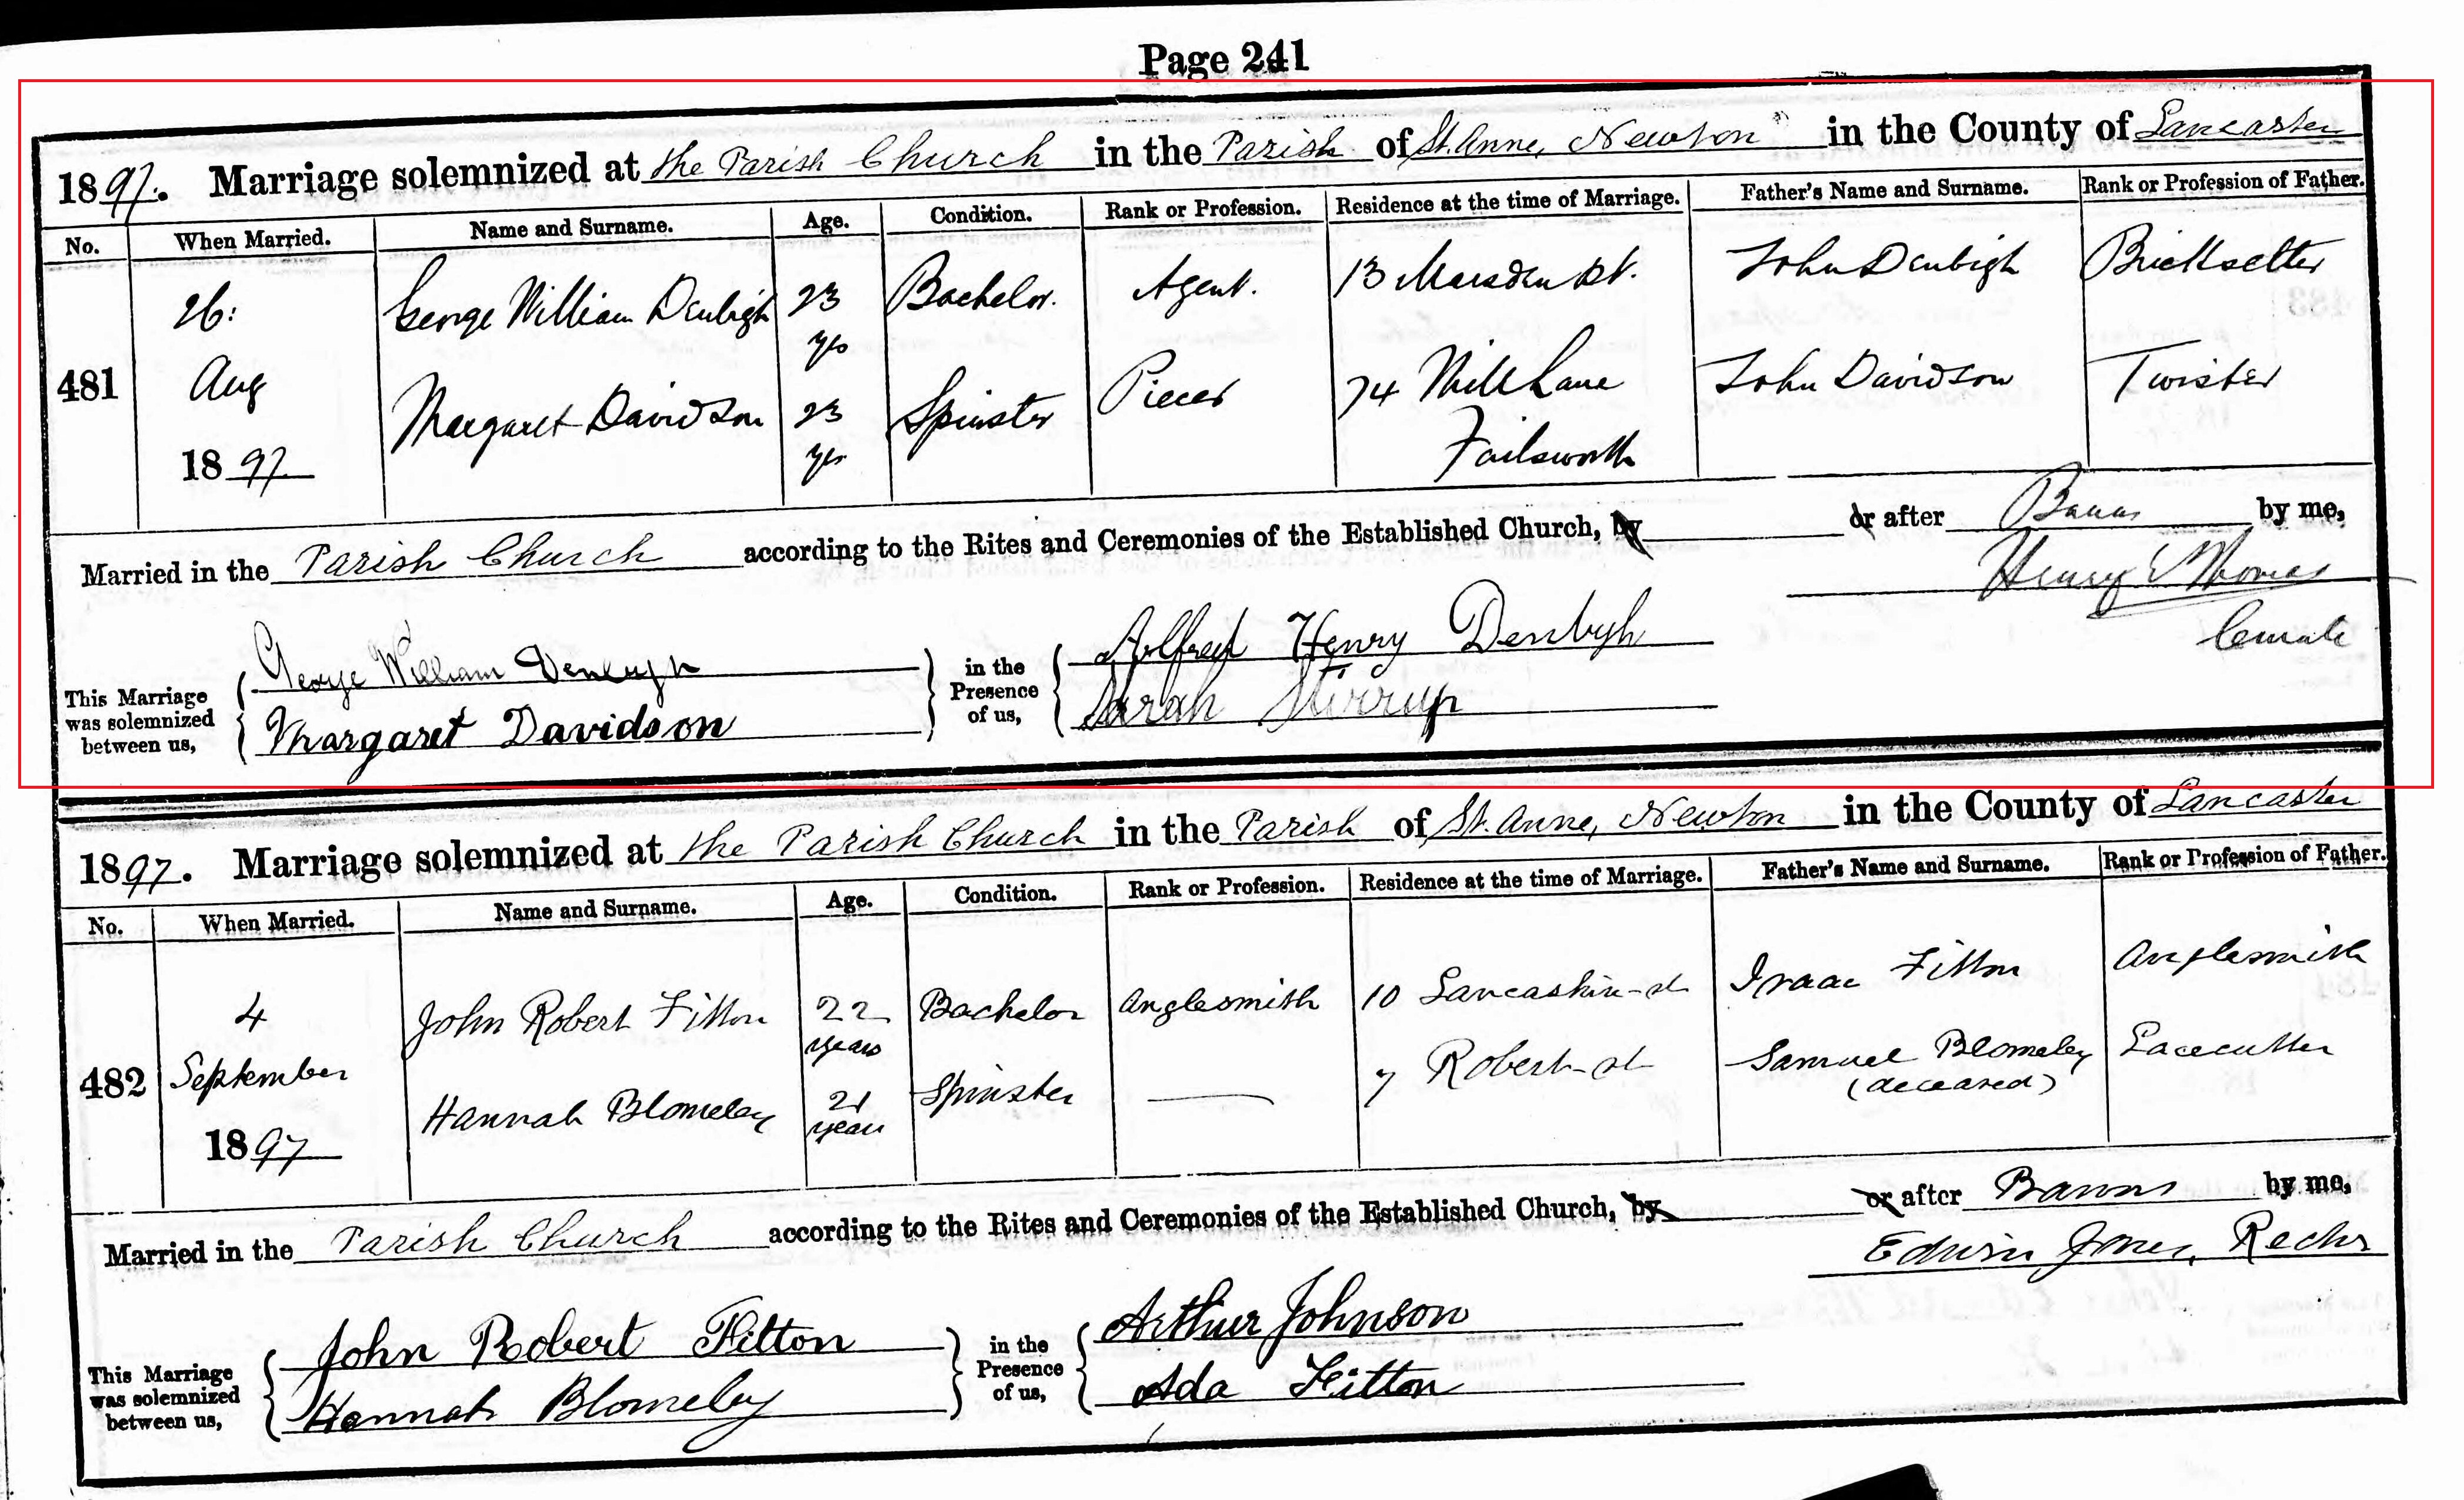 Page 241
1897. Marriage solemnized at the Parish Church in the Parish of St. Anne, Newton in the County of Lancaster
No. When Married. Name and Surname. Age. Condition. Rank or Profession. Residence at the time of Marriage. Father's Name and Surname. Rank or Profession of Father.
26: George William Denbigh 23 yrs Bachelor. Agent. 13 Marsden St. John Denbigh Bricksetter
481 Aug
1897 Margaret Davidson 23 yrs Spinster Piecer 74 Mill Lane Failsworth John Davidson Twister
Married in the Parish Church according to the Rites and Ceremonies of the Established Church, by or after Banns by me,
Henry Thomas
Curate
This Marriage was solemnized between us, George William Denbigh in the Presence of us, Alfred Henry Denbigh
Margaret Davidson Sarah Stirrup
1897. Marriage solemnized at the Parish Church in the Parish of St. Anne, Newton in the County of Lancaster
No. When Married. Name and Surname. Age. Condition. Rank or Profession. Residence at the time of Marriage. Father's Name and Surname. Rank or Profession of Father.
4 John Robert Fitton 22 years Bachelor Anglesmith 10 Lancashire-st Isaac Fitton Anglesmith
482 September
1897 Hannah Blomeley 21 years Spinster 7 Robert-st Samuel Blomeley (deceased) Lacecutter
Married in the Parish Church according to the Rites and Ceremonies of the Established Church, by or after Banns by me,
Edwin Jones, Rector
This Marriage was solemnized between us, John Robert Fitton in the Presence of us, Arthur Johnson
Hannah Blomeley Ada Fitton